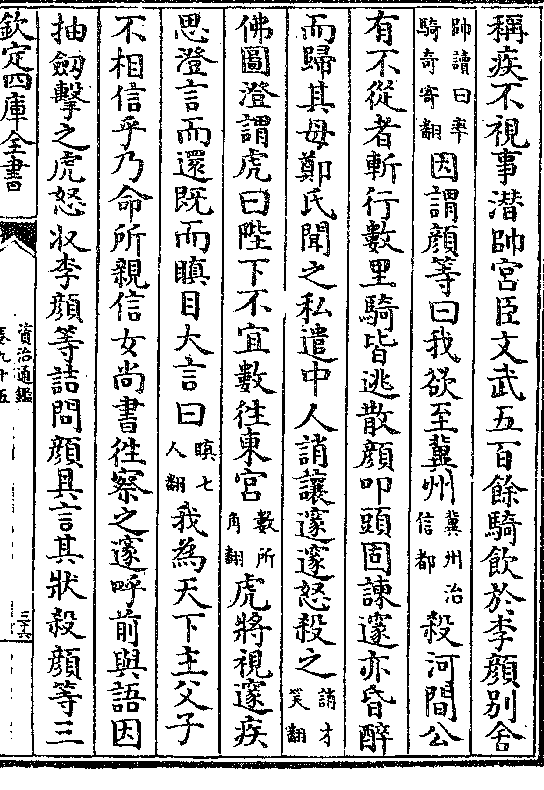 稱疾不視事潜帥宮臣文武五百餘騎飲於李顔別舍
帥讀曰率
騎奇寄翻
因謂顔等曰我欲至冀州
冀州治
信都
殺河間公
有不從者斬行數里騎皆逃散顔叩頭固諫邃亦昏醉
而歸其母鄭氏聞之私遣中人誚讓邃邃怒殺之
誚才
笑翻
佛圖澄謂虎曰陛下不宜數往東宮
數所
角翻
虎將視邃疾
思澄言而還既而瞋目大言曰
瞋七
人翻
我為天下主父子
不相信乎乃命所親信女尚書往察之邃呼前與語因
抽劔擊之虎怒收李顔等詰問顔具言其狀殺顔等三
欽定四庫全書
資治通鑑
卷九十五
三十六